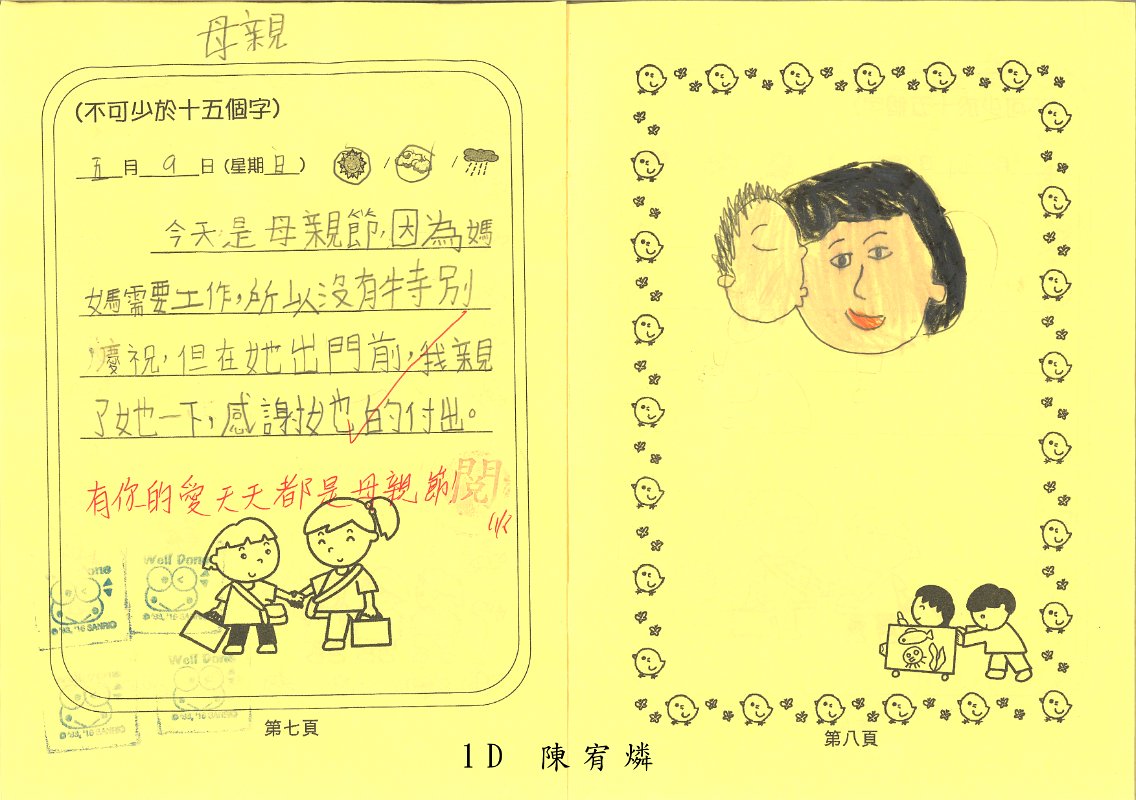 母親
(不可少於十五個字)
五月9日(星期日) / /
今天是母親節,因為媽
媽需要工作,所以沒有特別
慶祝,但在她出門前,我親
了她一下,感謝她的付出。
有你的愛天天都是母親節
閱
Well Done
Well Done
© '93, '16 SANRIO
Well Done
第七頁
第八頁
1D 陳宥燐